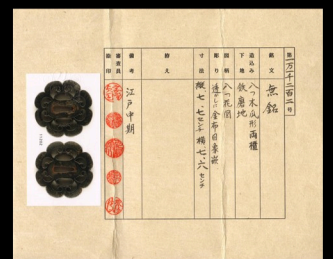 第一万一千二百二号
銘文 無銘
造込み 八ツ木瓜形両櫃
下地 鉄磨地
図柄 八つ花図
彫り 透かし金布目象嵌
寸法 縦七、七センチ 横七、六センチ
拵え
備考 江戸中期
審査員
証印